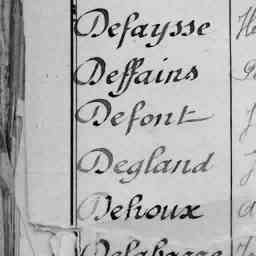 Defaysse
Deffains
Defont
Degland
Dehoux
Delabarre